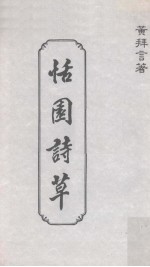 黃拜言著
恬園詩草